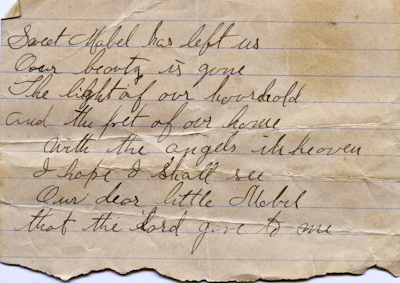 Sweet Mabel has left us
Our beauty is gone
The light of our household
and the pet of our home
With the angels in heaven
I hope I shall see
Our dear little Mabel
that the Lord gave to me